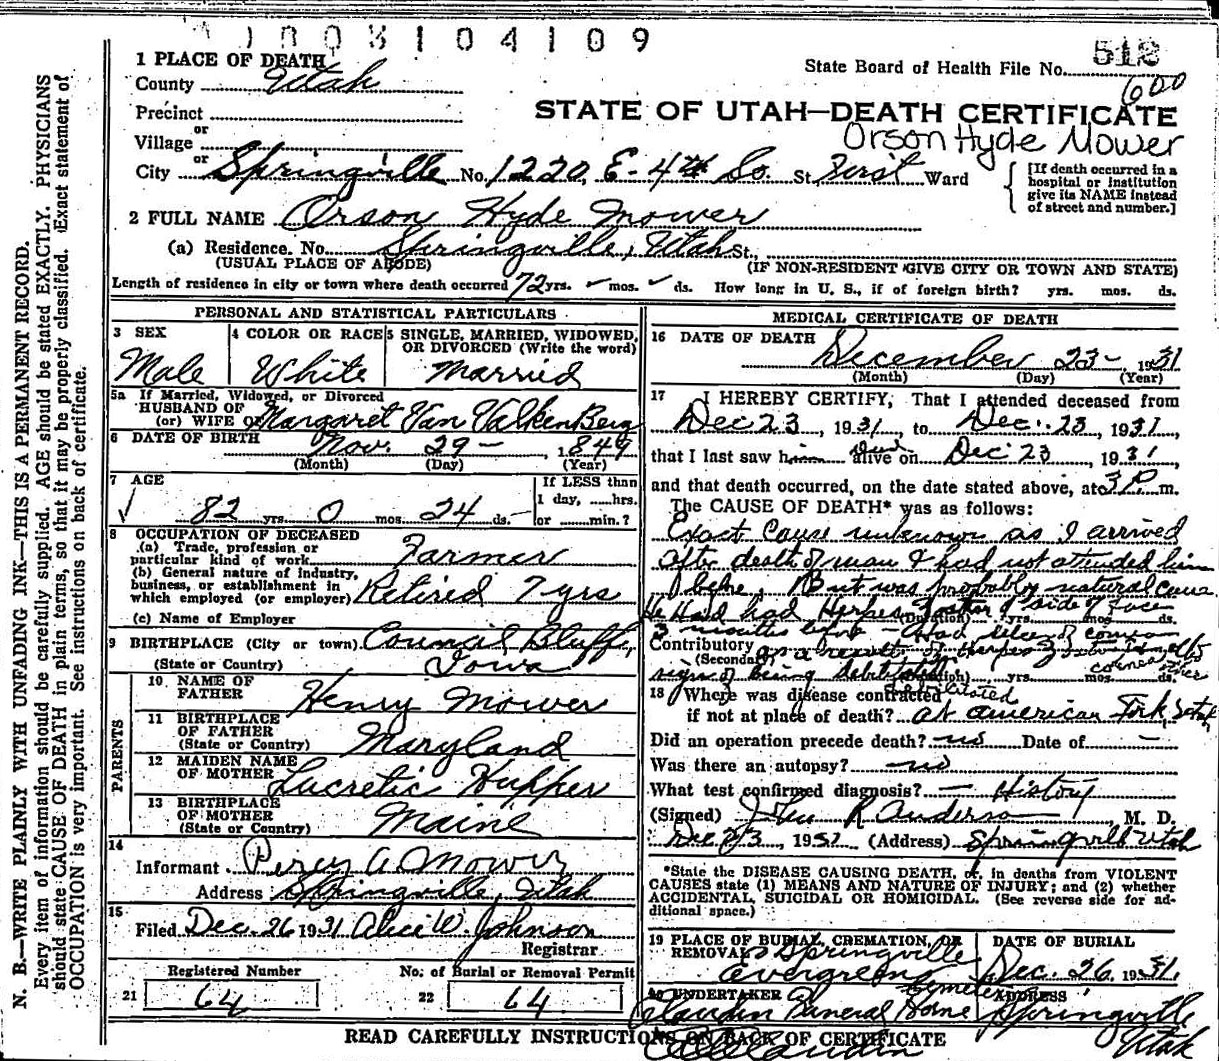 003104109
518
State Board of Health File No.
600
1 PLACE OF DEATH
County Utah
STATE OF UTAH—DEATH CERTIFICATE
Precinct
or
Village
Orson Hyde Mower
or
City Springville No. 1220, E-4th So. St. First Ward
[If death occurred in a
hospital or institution
give its NAME instead
of street and number.]
2 FULL NAME Orson Hyde Mower
(a) Residence. No. Springville, Utah St.,
(USUAL PLACE OF ABODE) (IF NON-RESIDENT GIVE CITY OR TOWN AND STATE)
Length of residence in city or town where death occurred 72 yrs. mos. ds. How long in U. S., if of foreign birth? yrs. mos. ds.
PERSONAL AND STATISTICAL PARTICULARS
3 SEX
Male
4 COLOR OR RACE
White
5 SINGLE, MARRIED, WIDOWED,
OR DIVORCED (Write the word)
Married
5a If Married, Widowed, or Divorced
HUSBAND OF
(or) WIFE OF Margaret Van ValkenBerg
6 DATE OF BIRTH Nov. 29 - 1849
(Month) (Day) (Year)
7 AGE
82 yrs. 0 mos. 24 ds.
If LESS than
1 day, ......hrs.
or ......min.?
8 OCCUPATION OF DECEASED
(a) Trade, profession or
particular kind of work Farmer
(b) General nature of industry,
business, or establishment in
which employed (or employer) Retired 7 yrs
(c) Name of Employer
9 BIRTHPLACE (City or town) Council Bluff,
(State or Country) Iowa
PARENTS
10 NAME OF
FATHER Henry Mower
11 BIRTHPLACE
OF FATHER
(State or Country) Maryland
12 MAIDEN NAME
OF MOTHER Lucretic Hupper
13 BIRTHPLACE
OF MOTHER
(State or Country) Maine
14
Informant Percy A Mower
Address Springville, Utah
15
Filed Dec. 26 1931 Alice W. Johnson
Registrar
Registered Number
21 64
No. of Burial or Removal Permit
22 64
MEDICAL CERTIFICATE OF DEATH
16 DATE OF DEATH
December 23 - 1931
(Month) (Day) (Year)
17 I HEREBY CERTIFY, That I attended deceased from
Dec 23, 1931, to Dec. 23, 1931,
that I last saw him alive on Dec 23, 1931,
and that death occurred, on the date stated above, at 3 P. m.
The CAUSE OF DEATH* was as follows:
Exact Cause unknown as I arrived
after death of man & had not attended him
before. But was probably natural cause
He Had had Herpes Zoster of side of face
(Duration) yrs. mos. ds.
3 months before - Had ulcer of cornea
Contributory as a result of Herpes
(Secondary)
signs of being debilitated
(Duration) yrs. mos. ds.
18 Where was disease contracted
if not at place of death? at American Fork, Utah
Did an operation precede death? no Date of —
Was there an autopsy? no
What test confirmed diagnosis? — History
(Signed) R Anderson, M. D.
Dec 23 1931 (Address) Springville Utah
*State the DISEASE CAUSING DEATH, or, in deaths from VIOLENT
CAUSES state (1) MEANS AND NATURE OF INJURY; and (2) whether
ACCIDENTAL, SUICIDAL OR HOMICIDAL. (See reverse side for ad-
ditional space.)
19 PLACE OF BURIAL, CREMATION, OR
REMOVAL Springville
Evergreen Cemetery
DATE OF BURIAL
Dec. 26, 1931
20 UNDERTAKER
Claudin Funeral Home
ADDRESS
Springville
Utah
READ CAREFULLY INSTRUCTIONS ON BACK OF CERTIFICATE
N. B.—WRITE PLAINLY WITH UNFADING INK—THIS IS A PERMANENT RECORD.
Every item of information should be carefully supplied. AGE should be stated EXACTLY. PHYSICIANS
should state CAUSE OF DEATH in plain terms, so that it may be properly classified. Exact statement of
OCCUPATION is very important. See instructions on back of certificate.